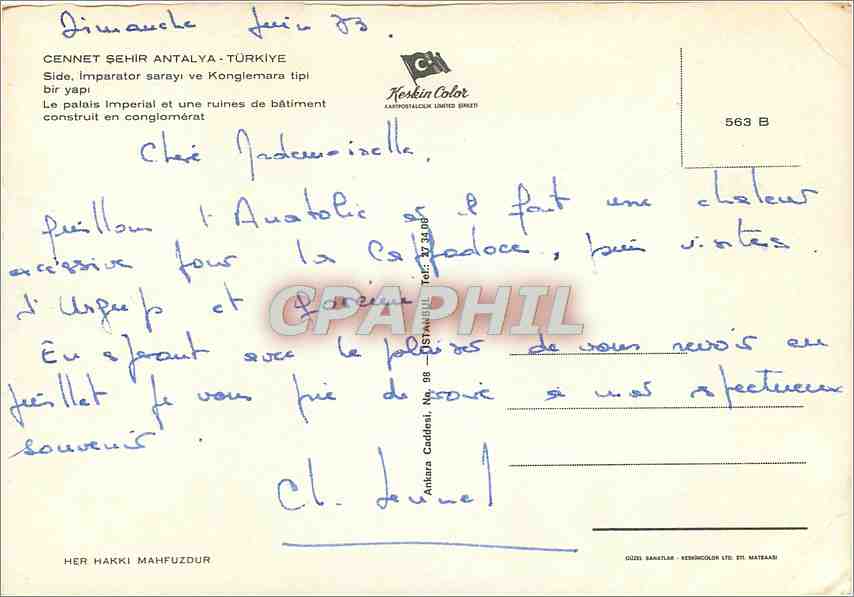 Dimanche Juin 73.
CENNET ŞEHİR ANTALYA - TÜRKİYE
Side, İmparator sarayı ve Konglemara tipi
bir yapı
Le palais Imperial et une ruines de bâtiment
construit en conglomérat
Keskin Color
KARTPOSTALCILIK LİMİTED ŞİRKETİ
563 B
Chère Mademoiselle,
l'Anatolie et il fait une chaleur
excessive pour la Cappadoce, puis visites
d'Urgup et
En espérant avoir le plaisir de vous revoir en
juillet je vous prie de croire à mes respectueux
souvenirs.
Ch.
CPAPHIL
Ankara Caddesi, No. 98 — İSTANBUL Tel.: 27 34 08
HER HAKKI MAHFUZDUR
GÜZEL SANATLAR - KESKİNCOLOR LTD. ŞTİ. MATBAASI